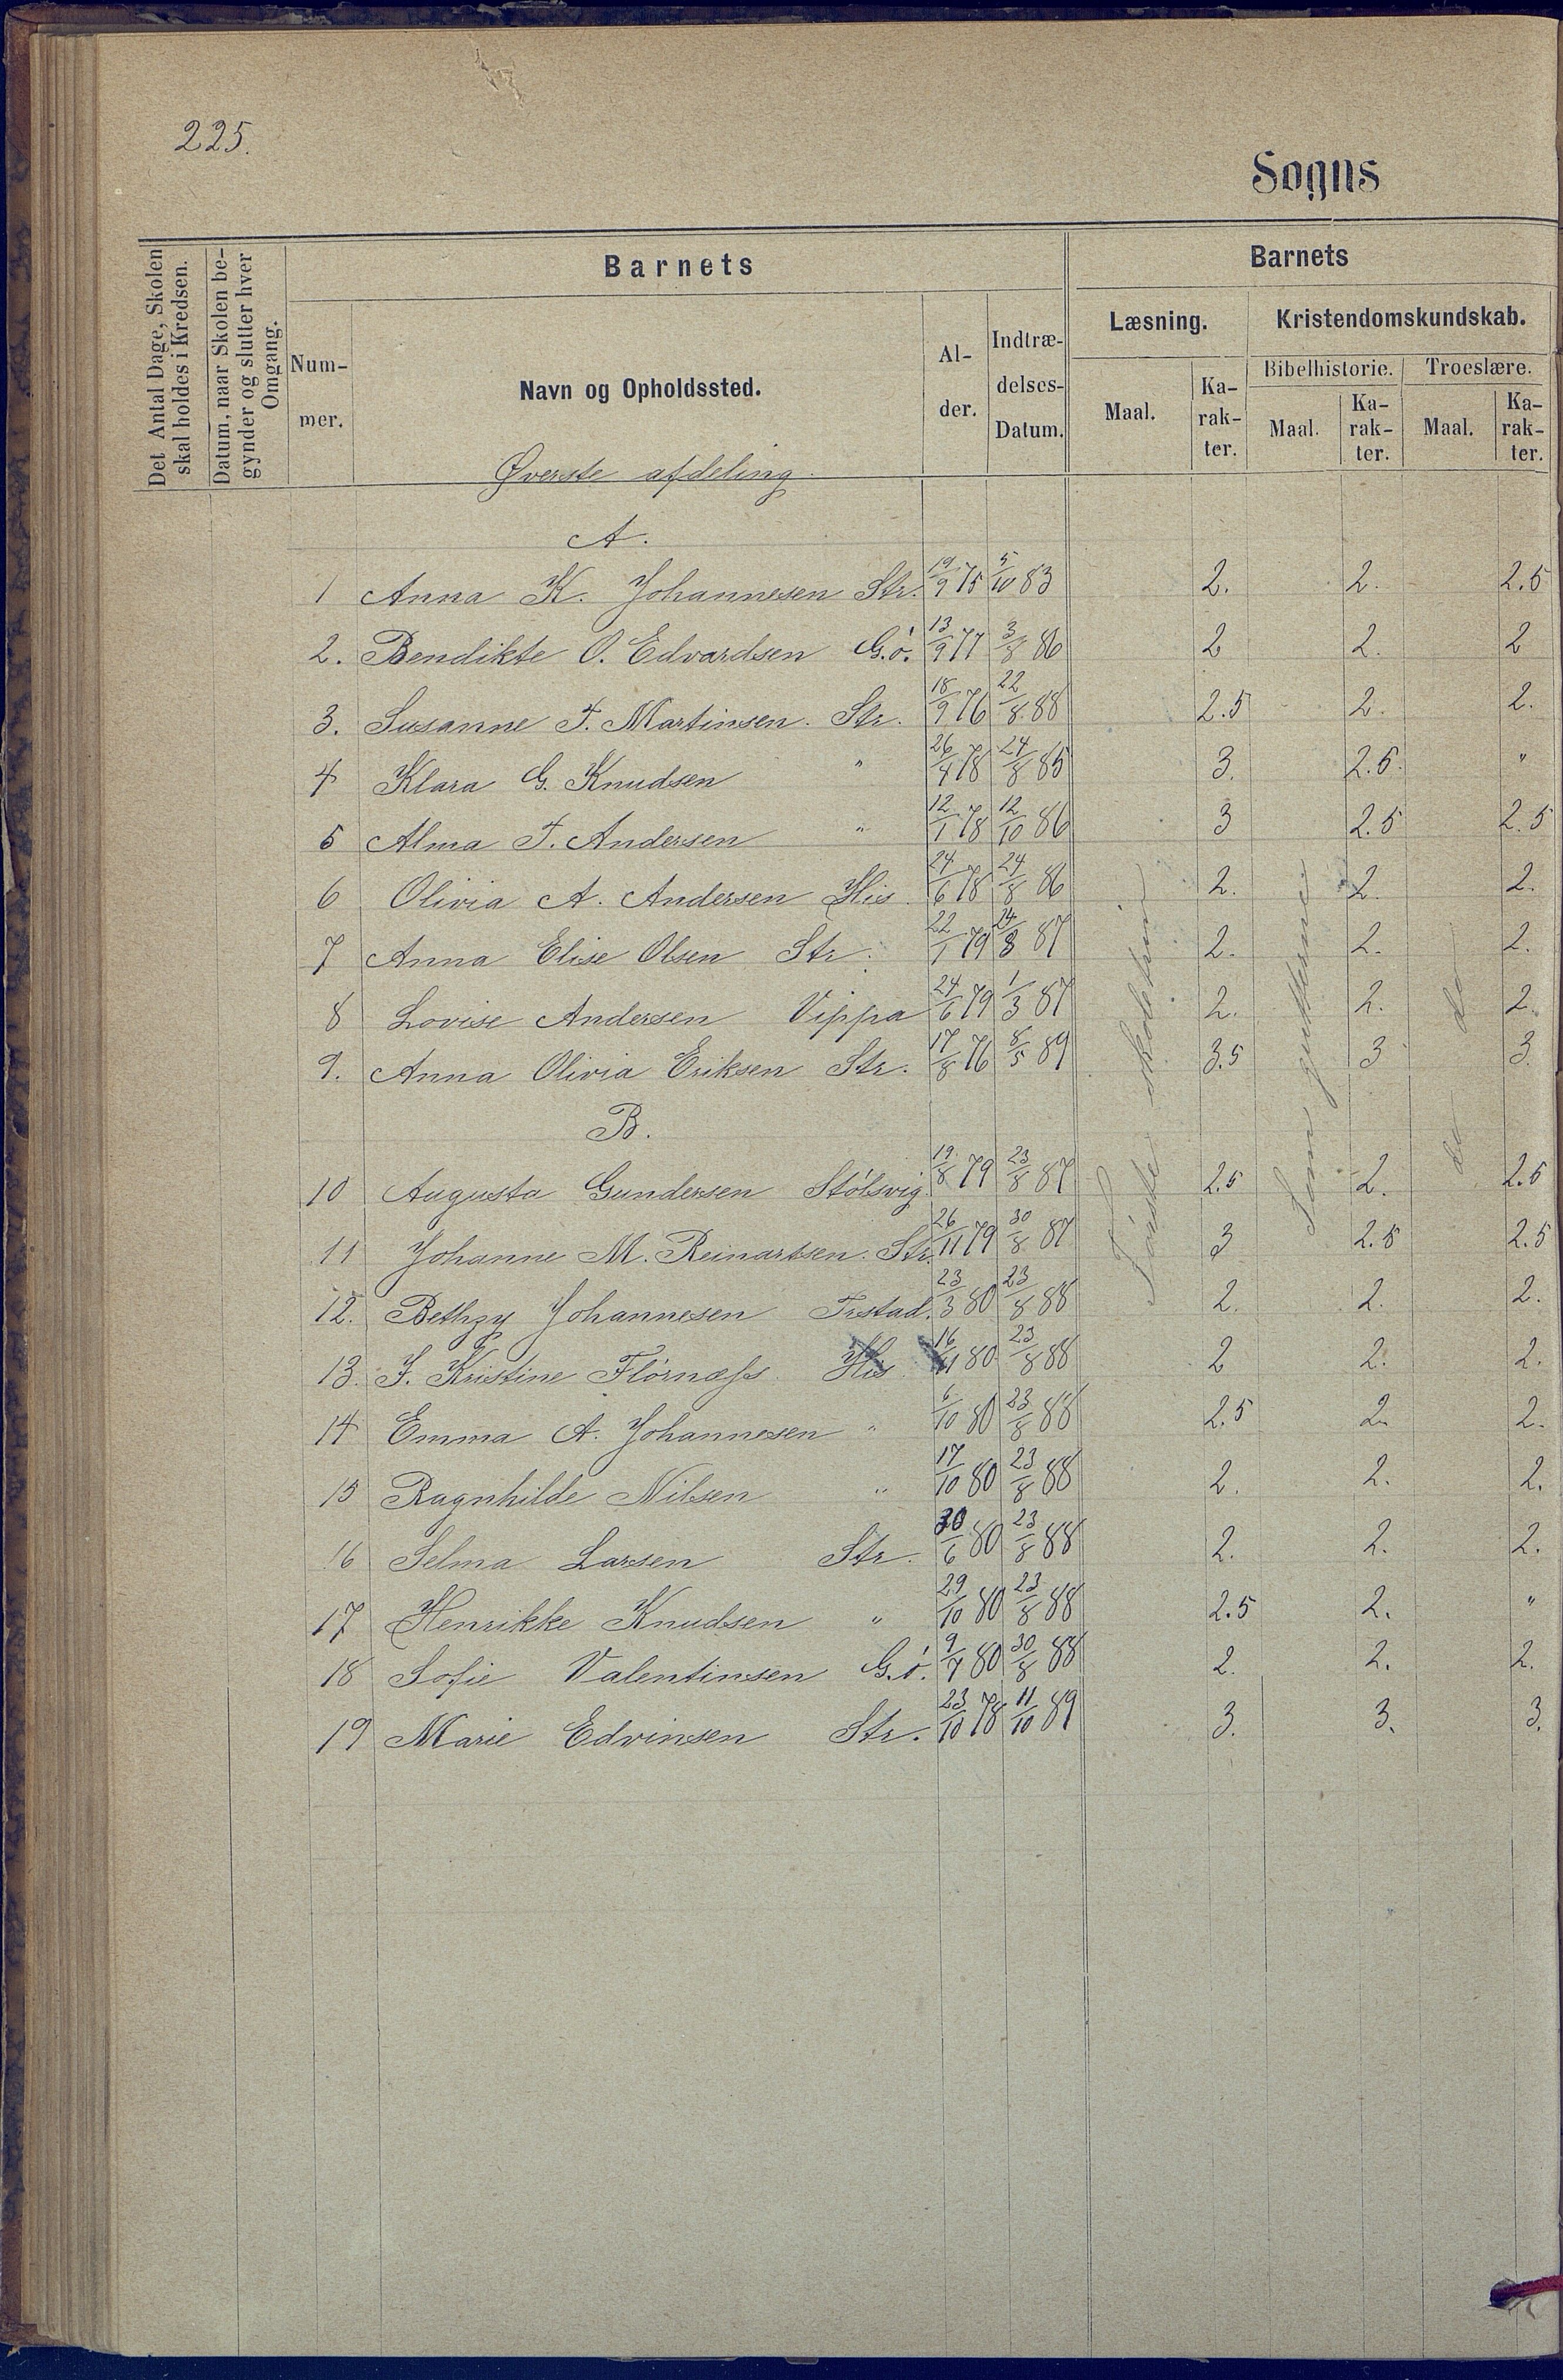 225.
Sogns
Det Antal Dage, Skolen
skal holdes i Kredsen.
Datum, naar Skolen be-
gynder og slutter hver
Omgang.
Barnets
Num-
mer.
Navn og Opholdssted.
Al-
der.
Indtræ-
delses-
Datum.
Barnets
Læsning.
Kristendomskundskab.
Maal.
Ka-
rak-
ter.
Bibelhistorie.
Troeslære.
Maal.
Ka-
rak-
ter.
Maal.
Ka-
rak-
ter.
Øverste afdeling
A.
1 Anna K. Johannesen Str. 19/9 75 5/10 83 2. 2. 2.5
2. Bendikte O. Edvardsen G.ö. 13/9 77 3/8 86 2 2. 2
3. Susanne F. Martinsen. Str. 18/9 76 22/8 88 2.5 2. 2.
4 Klara G. Knudsen " 26/4 78 24/8 85 3. 2.5. "
5 Alma F. Andersen " 12/1 78 12/10 86 3 2.5 2.5
6 Olivia A. Andersen His. 24/6 78 24/8 86 2. 2. 2.
7 Anna Elise Olsen Str. 22/1 79 24/8 87 2. 2. 2.
8 Lovise Andersen Vippa 24/6 79 1/3 87 2. 2. 2.
9. Anna Olivia Eriksen Str. 17/8 76 8/5 89 3.5 3 3.
B.
10 Augusta Gundersen Stölsvig. 19/8 79 23/8 87 2.5 2. 2.5
11 Johanne M. Reinartsen. Str. 26/11 79 30/8 87 3 2.5 2.5
12. Bethzy Johannesen Trstad. 23/3 80 23/8 88 2. 2. 2.
13. J. Kristine Flörnæss. His 16/11 80 23/8 88 2 2. 2.
14 Emma A. Johannesen " 6/10 80 23/8 88 2.5 2. 2.
15 Ragnhilde Nilsen " 17/10 80 23/8 88 2. 2. 2.
16 Selma Larsen Str. 30/6 80 23/8 88 2. 2. 2.
17 Henrikke Knudsen " 29/10 80 23/8 88 2.5 2. "
18 Sofie Valentinsen G.ö. 9/7 80 30/8 88 2. 2. 2.
19 Marie Edvinsen Str. 23/10 78 11/10 89 3. 3. 3.
Som gutterne
do do